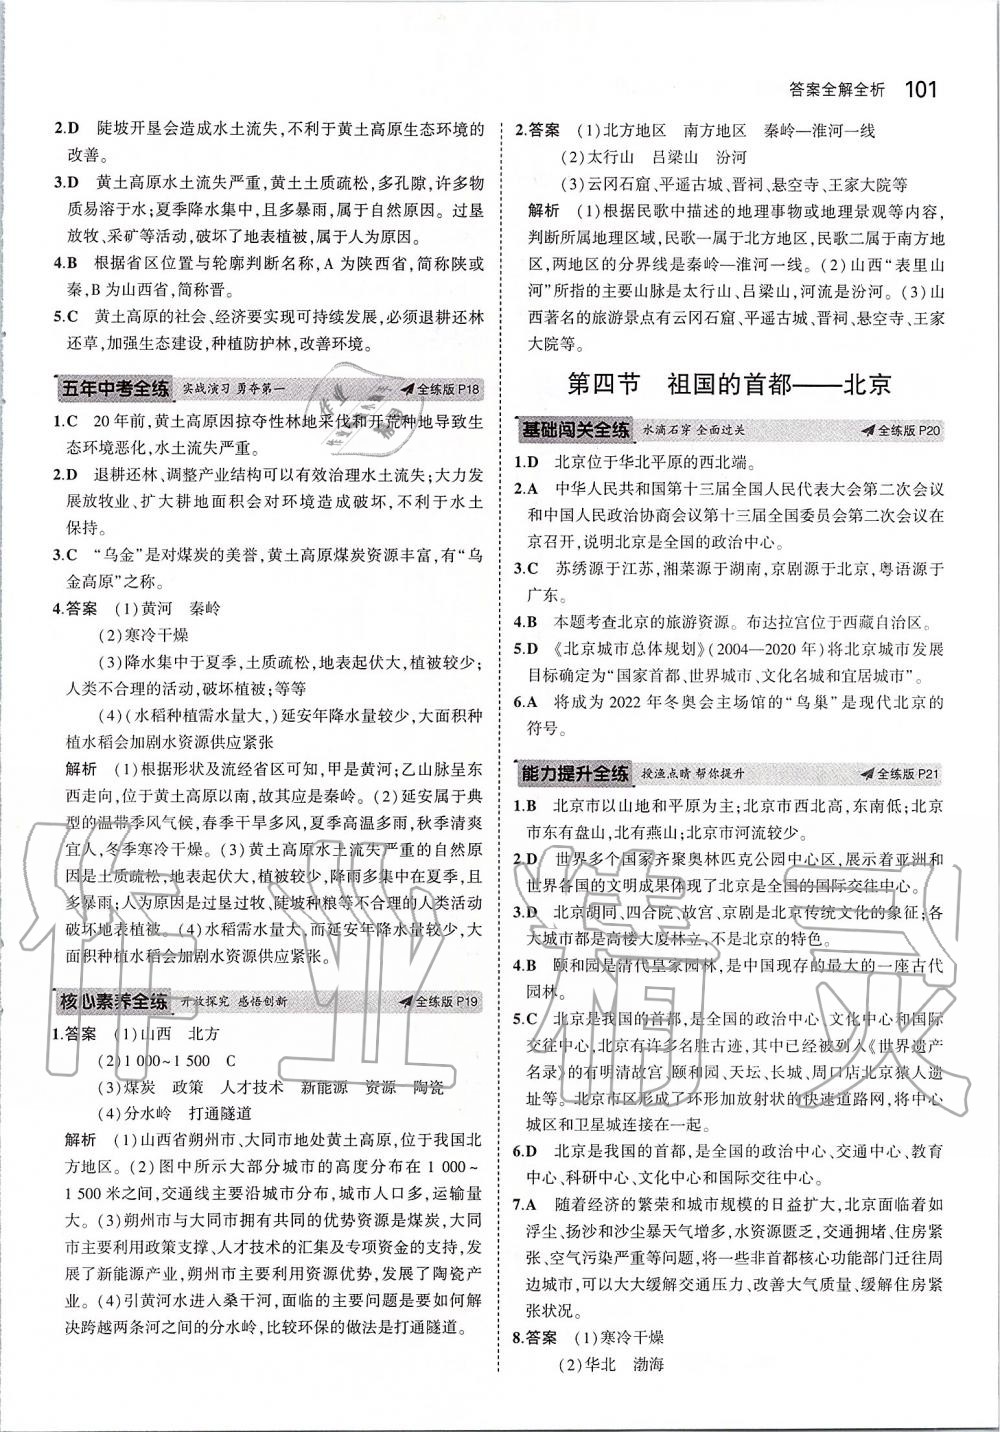 答案全解全析 101
2.D 陡坡开垦会造成水土流失,不利于黄土高原生态环境的
改善。
3.D 黄土高原水土流失严重,黄土土质疏松,多孔隙,许多物
质易溶于水;夏季降水集中,且多暴雨,属于自然原因。过垦
放牧、采矿等活动,破坏了地表植被,属于人为原因。
4.B 根据省区位置与轮廓判断名称,A 为陕西省,简称陕或
秦,B 为山西省,简称晋。
5.C 黄土高原的社会、经济要实现可持续发展,必须退耕还林
还草,加强生态建设,种植防护林,改善环境。
五年中考全练 实战演习 勇夺第一 全练版 P18
1.C 20 年前,黄土高原因掠夺性林地采伐和开荒种地导致生
态环境恶化,水土流失严重。
2.D 退耕还林、调整产业结构可以有效治理水土流失;大力发
展放牧业、扩大耕地面积会对环境造成破坏,不利于水土
保持。
3.C “乌金”是对煤炭的美誉,黄土高原煤炭资源丰富,有“乌
金高原”之称。
4.答案 (1)黄河 秦岭
(2)寒冷干燥
(3)降水集中于夏季,土质疏松,地表起伏大,植被较少;
人类不合理的活动,破坏植被;等等
(4)(水稻种植需水量大,)延安年降水量较少,大面积种
植水稻会加剧水资源供应紧张
解析 (1)根据形状及流经省区可知,甲是黄河;乙山脉呈东
西走向,位于黄土高原以南,故其应是秦岭。(2)延安属于典
型的温带季风气候,春季干旱多风,夏季高温多雨,秋季清爽
宜人,冬季寒冷干燥。(3)黄土高原水土流失严重的自然原
因是土质疏松,地表起伏大,植被较少,降雨多集中在夏季,且
多暴雨;人为原因是过垦过牧、陡坡种粮等不合理的人类活动
破坏地表植被。(4)水稻需水量大,而延安年降水量较少,大
面积种植水稻会加剧水资源供应紧张。
核心素养全练 开放探究 感悟创新 全练版 P19
1.答案 (1)山西 北方
(2)1 000~1 500 C
(3)煤炭 政策 人才技术 新能源 资源 陶瓷
(4)分水岭 打通隧道
解析 (1)山西省朔州市、大同市地处黄土高原,位于我国北
方地区。(2)图中所示大部分城市的高度分布在 1 000~
1 500 米之间,交通线主要沿城市分布,城市人口多,运输量
大。(3)朔州市与大同市拥有共同的优势资源是煤炭,大同
市主要利用政策支撑、人才技术的汇集及专项资金的支持,发
展了新能源产业,朔州市主要利用资源优势,发展了陶瓷产
业。(4)引黄河水进入桑干河,面临的主要问题是要如何解
决跨越两条河之间的分水岭,比较环保的做法是打通隧道。
2.答案 (1)北方地区 南方地区 秦岭—淮河一线
(2)太行山 吕梁山 汾河
(3)云冈石窟、平遥古城、晋祠、悬空寺、王家大院等
解析 (1)根据民歌中描述的地理事物或地理景观等内容,
判断所属地理区域,民歌一属于北方地区,民歌二属于南方地
区,两地区的分界线是秦岭—淮河一线。(2)山西“表里山
河”所指的主要山脉是太行山、吕梁山,河流是汾河。(3)山
西著名的旅游景点有云冈石窟、平遥古城、晋祠、悬空寺、王家
大院等。
第四节 祖国的首都——北京
基础闯关全练 水滴石穿 全面过关 全练版 P20
1.D 北京位于华北平原的西北端。
2.A 中华人民共和国第十三届全国人民代表大会第二次会议
和中国人民政治协商会议第十三届全国委员会第二次会议在
京召开,说明北京是全国的政治中心。
3.C 苏绣源于江苏,湘菜源于湖南,京剧源于北京,粤语源于
广东。
4.B 本题考查北京的旅游资源。布达拉宫位于西藏自治区。
5.D 《北京城市总体规划》(2004—2020 年)将北京城市发展
目标确定为“国家首都、世界城市、文化名城和宜居城市”。
6.A 将成为 2022 年冬奥会主场馆的“鸟巢”是现代北京的
符号。
能力提升全练 授渔点睛 帮你提升 全练版 P21
1.B 北京市以山地和平原为主;北京市西北高,东南低;北京
市东有盘山,北有燕山;北京市河流较少。
2.D 世界多个国家齐聚奥林匹克公园中心区,展示着亚洲和
世界各国的文明成果体现了北京是全国的国际交往中心。
3.D 北京胡同、四合院、故宫、京剧是北京传统文化的象征;各
大城市都是高楼大厦林立,不是北京的特色。
4.B 颐和园是清代皇家园林,是中国现存的最大的一座古代
园林。
5.C 北京是我国的首都,是全国的政治中心、文化中心和国际
交往中心,北京有许多名胜古迹,其中已经被列入《世界遗产
名录》的有明清故宫、颐和园、天坛、长城、周口店北京猿人遗
址等。北京市区形成了环形加放射状的快速道路网,将中心
城区和卫星城连接在一起。
6.D 北京是我国的首都,是全国的政治中心、交通中心、教育
中心、科研中心、文化中心和国际交往中心。
7.A 随着经济的繁荣和城市规模的日益扩大,北京面临着如
浮尘、扬沙和沙尘暴天气增多,水资源匮乏,交通拥堵、住房紧
张、空气污染严重等问题,将一些非首都核心功能部门迁往周
边城市,可以大大缓解交通压力、改善大气质量、缓解住房紧
张状况。
8.答案 (1)寒冷干燥
(2)华北 渤海
作业精灵